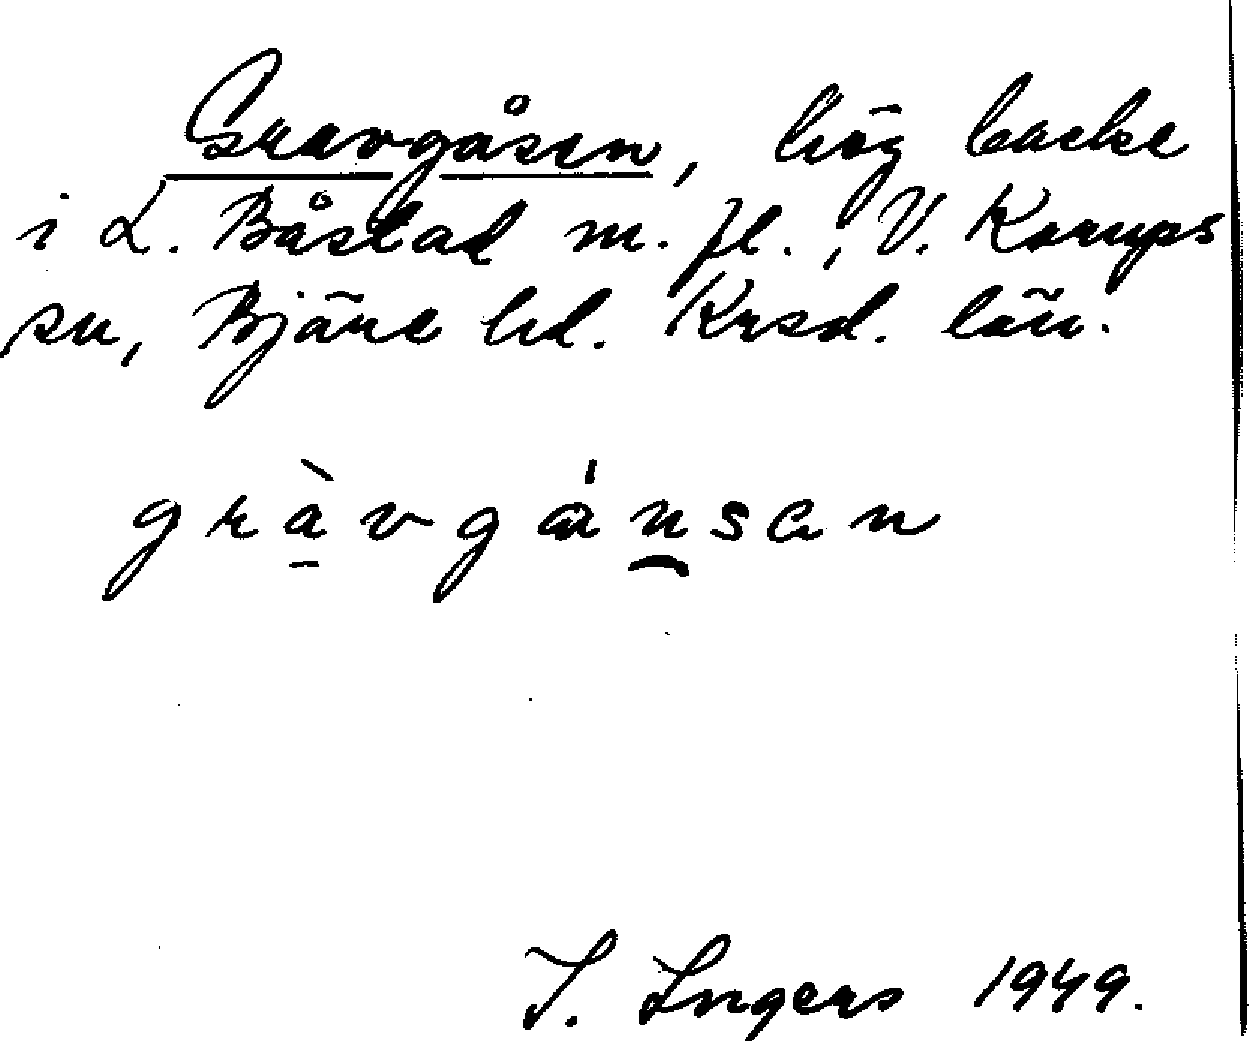 Gravgåsen, hög backe
i L. Båstad m. fl., V. Karups
sn, Bjäre hd. Krsd. län.
gràvgánsen
I. Ingers 1949.